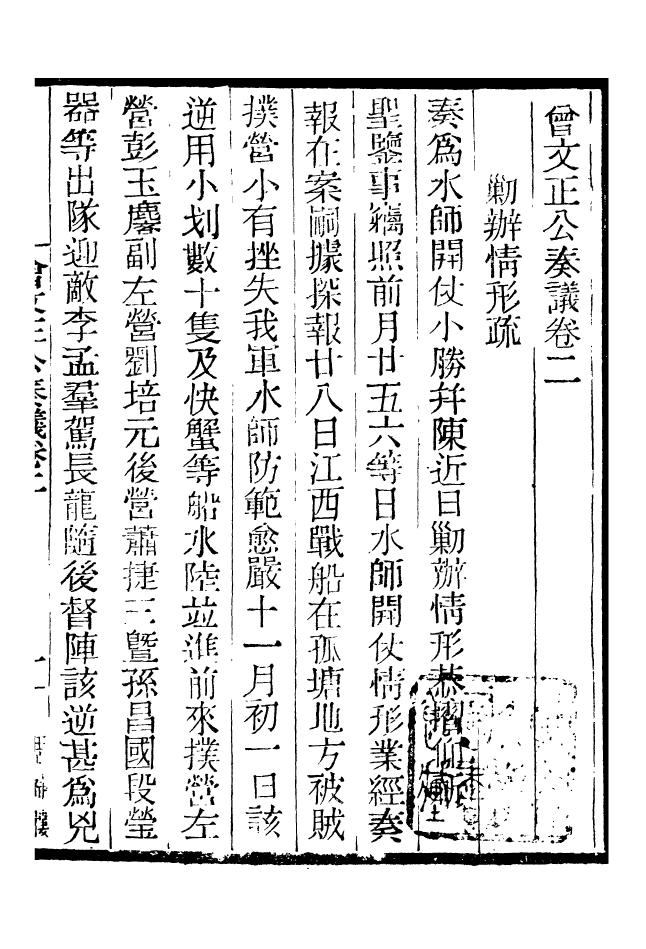 曾文正公奏議卷二
勦辦情形疏
奏爲水師開仗小勝幷陳近日勦辦情形恭摺仰祈
聖鑒事竊照前月廿五六等日水師開仗情形業經奏
報在案嗣據探報廿八日江西戰船在孤塘地方被賊
撲營小有挫失我軍水師防範愈嚴十一月初一日該
逆用小划數十隻及快蟹等船水陸並進前來撲營左
營彭玉麐副左營劉培元後營蕭捷三暨孫昌國段瑩
器等出隊迎敵李孟羣駕長龍隨後督陣該逆甚爲兇
曾文正公奏議卷二
一